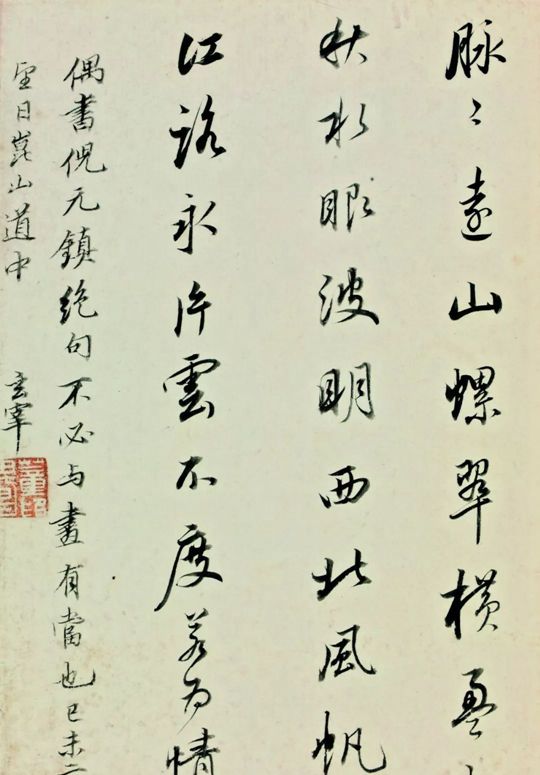 脉〻遠山螺翠橫盈
秋水眼波明西北風帆
江路永片雲不度若為情
偶書倪元鎮絕句不必与畫有當也己未二
望日崑山道中
玄宰
董其昌印